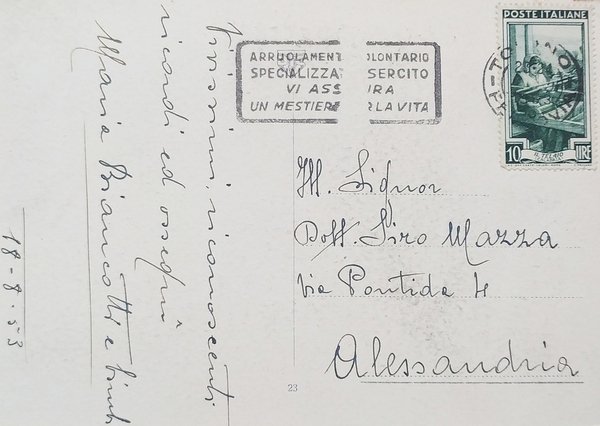 Vivissimi, riconoscenti
ricordi ed ossequi
Maria Biancotti e
18-8-53
ARRUOLAMENT OLONTARIO
SPECIALIZZA SERCITO
VI ASS IRA
UN MESTIERE R LA VITA
POSTE ITALIANE
IL TELAIO
10 LIRE
Ill. Signor
Dott. Siro Mazza
via Pontida 4
Alessandria
23